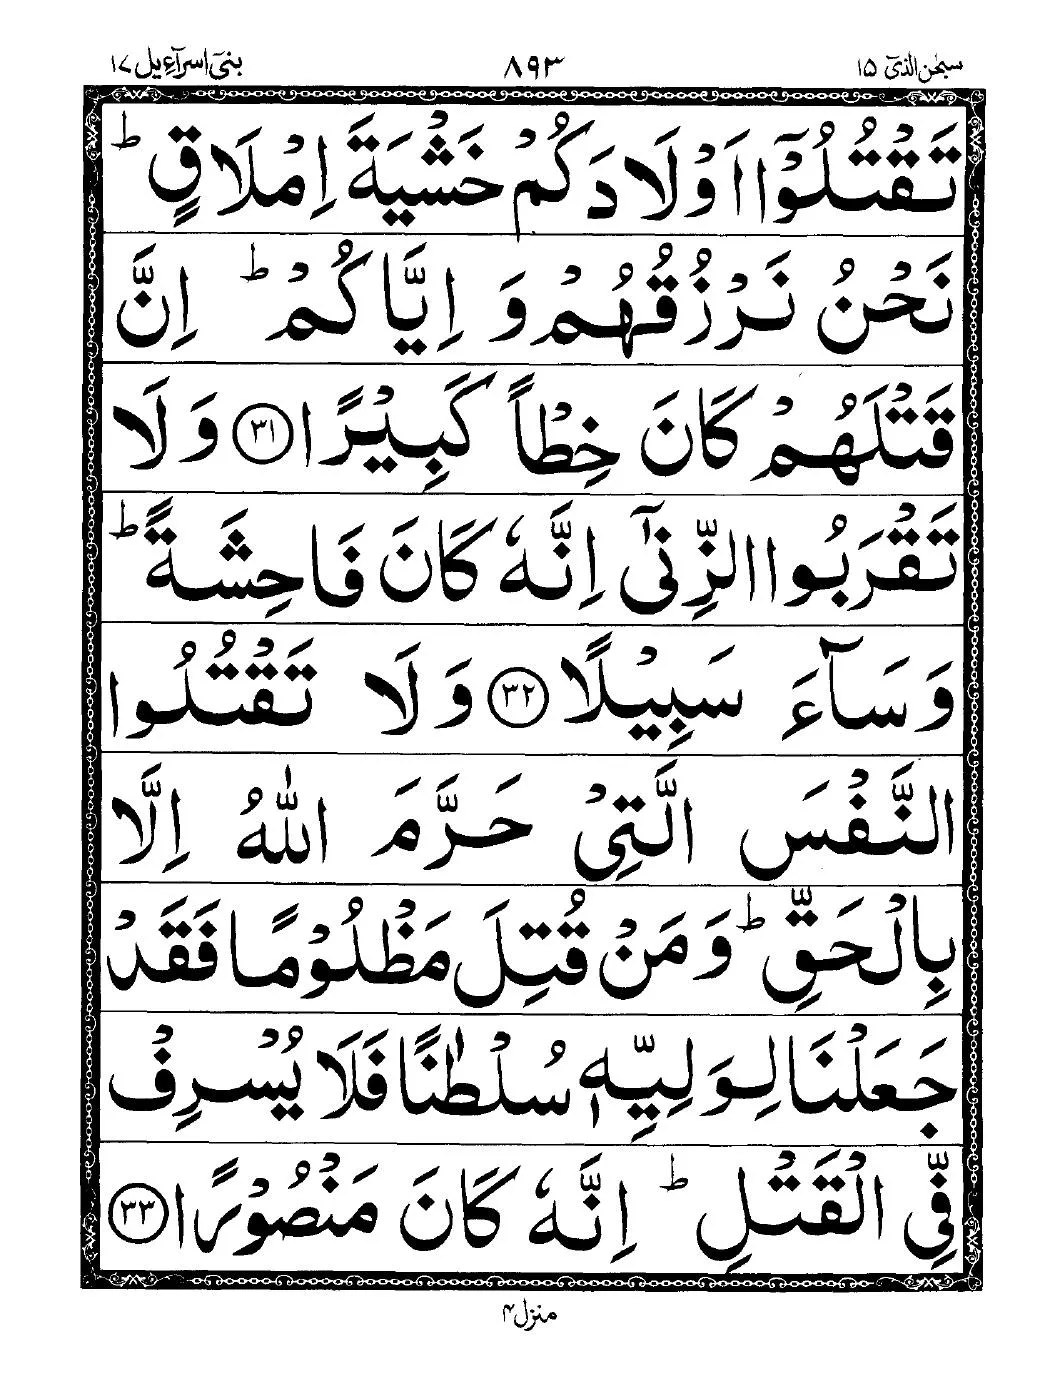 سبحٰن الذیٓ ١٥
٨٩٣
بنیٓ اسرآءیل ١٧
تَقْتُلُوْٓا اَوْلَادَكُمْ خَشْيَةَ اِمْلَاقٍ ؕ
نَحْنُ نَرْزُقُهُمْ وَ اِيَّاكُمْ ؕ اِنَّ
قَتْلَهُمْ كَانَ خِطْاً كَبِيْرًا ﴿٣١﴾ وَ لَا
تَقْرَبُوا الزِّنٰٓى اِنَّهٗ كَانَ فَاحِشَةً ؕ
وَ سَآءَ سَبِيْلًا ﴿٣٢﴾ وَ لَا تَقْتُلُوا
النَّفْسَ الَّتِىْ حَرَّمَ اللّٰهُ اِلَّا
بِالْحَقِّ ؕ وَ مَنْ قُتِلَ مَظْلُوْمًا فَقَدْ
جَعَلْنَا لِوَلِيِّهٖ سُلْطٰنًا فَلَا يُسْرِفْ
فِّى الْقَتْلِ ؕ اِنَّهٗ كَانَ مَنْصُوْرًا ﴿٣٣﴾
منزل ۴